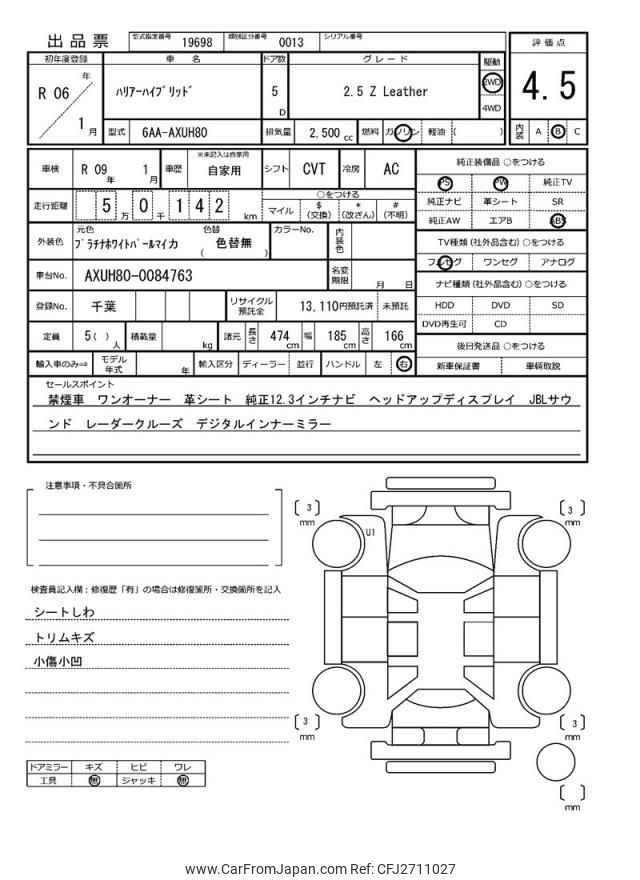 出品票 型式指定番号 19698 類別区分番号 0013 シリアル番号
初年度登録 車名 ドア数 グレード 駆動 評価点
R 06 年 1 月 ﾊﾘｱｰﾊｲﾌﾞﾘｯﾄﾞ 5 D 2.5 Z Leather 2WD 4WD 4.5
型式 6AA-AXUH80 排気量 2,500 cc 燃料 ガソリン 軽油 ( ) 内装 A B C
車検 R 09 年 1 月 車歴 ※未記入は自家用 自家用 シフト CVT 冷房 AC 純正装備品 ○をつける
PS PW 純正TV
走行距離 5 万 0 千 1 4 2 km ○をつける マイル $ (交換) * (改ざん) # (不明) 純正ナビ 革シート SR
純正AW エアB ABS
外装色 元色 ﾌﾟﾗﾁﾅﾎﾜｲﾄﾊﾟｰﾙﾏｲｶ 色替 ( 色替無 ) カラーNo. 内装色 TV種類 (社外品含む) ○をつける
フルセグ ワンセグ アナログ
車台No. AXUH80-0084763 名変期限 月 日 ナビ種類 (社外品含む) ○をつける
登録No. 千葉 リサイクル預託金 13,110 円預託済 未預託 HDD DVD SD
DVD再生可 CD
定員 5 ( ) 人 積載量 kg 諸元 長さ 474 cm 幅 185 cm 高さ 166 cm 後日発送品 ○をつける
輸入車のみ⇒ モデル年式 年 輸入区分 ディーラー 並行 ハンドル 左 右 新車保証書 車輌取説
セールスポイント
禁煙車 ワンオーナー 革シート 純正12.3インチナビ ヘッドアップディスプレイ JBLサウ
ンド レーダークルーズ デジタルインナーミラー
注意事項・不具合箇所
[ 3 ] mm [ 3 ] mm
U1
検査員記入欄：修復歴「有」の場合は修復箇所・交換箇所を記入
シートしわ
トリムキズ
小傷小凹
[ 3 ] mm [ 3 ] mm
ドアミラー キズ ヒビ ワレ
工具 無 ジャッキ 無
[ ] mm
www.CarFromJapan.com Ref: CFJ2711027